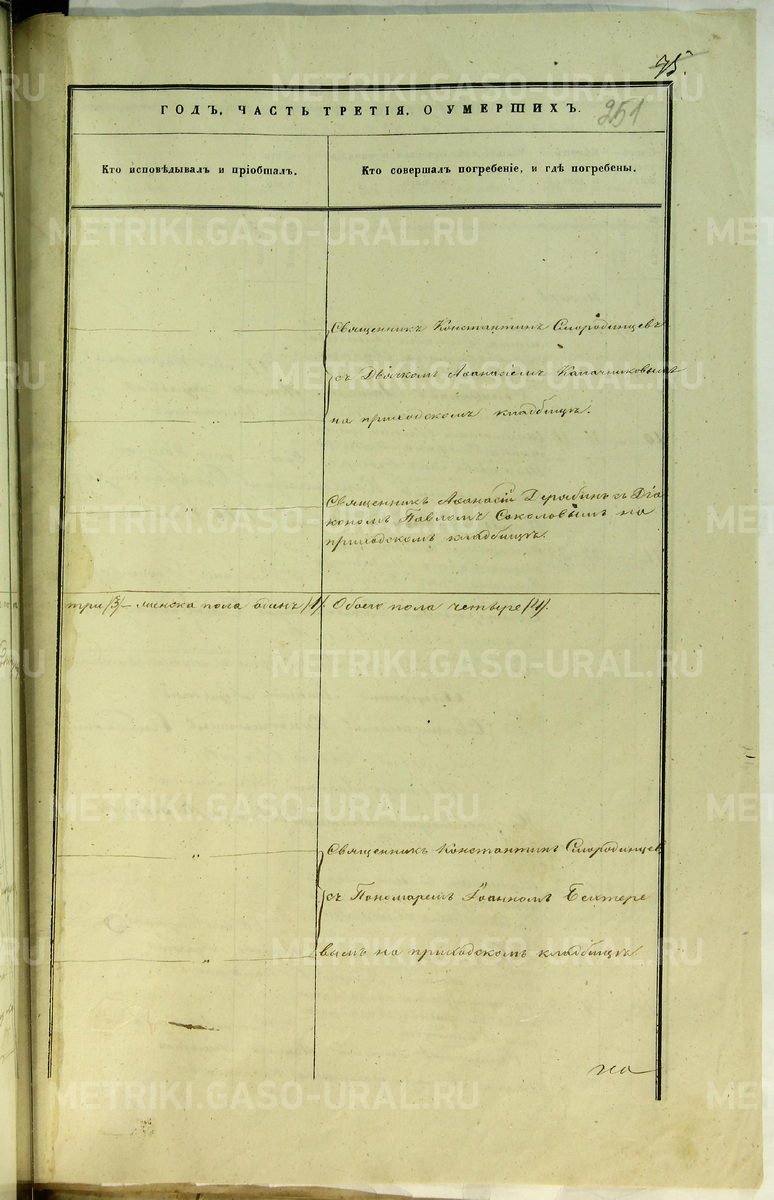 75.
ГОДЪ, ЧАСТЬ ТРЕТІЯ, О УМЕРШИХЪ.
251
Кто исповѣдывалъ и пріобщалъ.
Кто совершалъ погребеніе, и гдѣ погребены.
Священникъ Константинъ Смородинцевъ
съ Дьячкомъ Аѳанасіемъ Калачниковымъ
на приходскомъ кладбищѣ.
Священникъ Аѳанасій Дерябинъ съ Діа
кономъ Павломъ Соколовымъ на
приходскомъ кладбищѣ.
три /3/ – женска пола одинъ /1/. Обоего пола четыре /4/.
Священникъ Константинъ Смородинцев
съ Пономаремъ Іоанномъ Бехтере
вымъ на приходскомъ кладбищѣ
на
METRIKI.GASO-URAL.RU